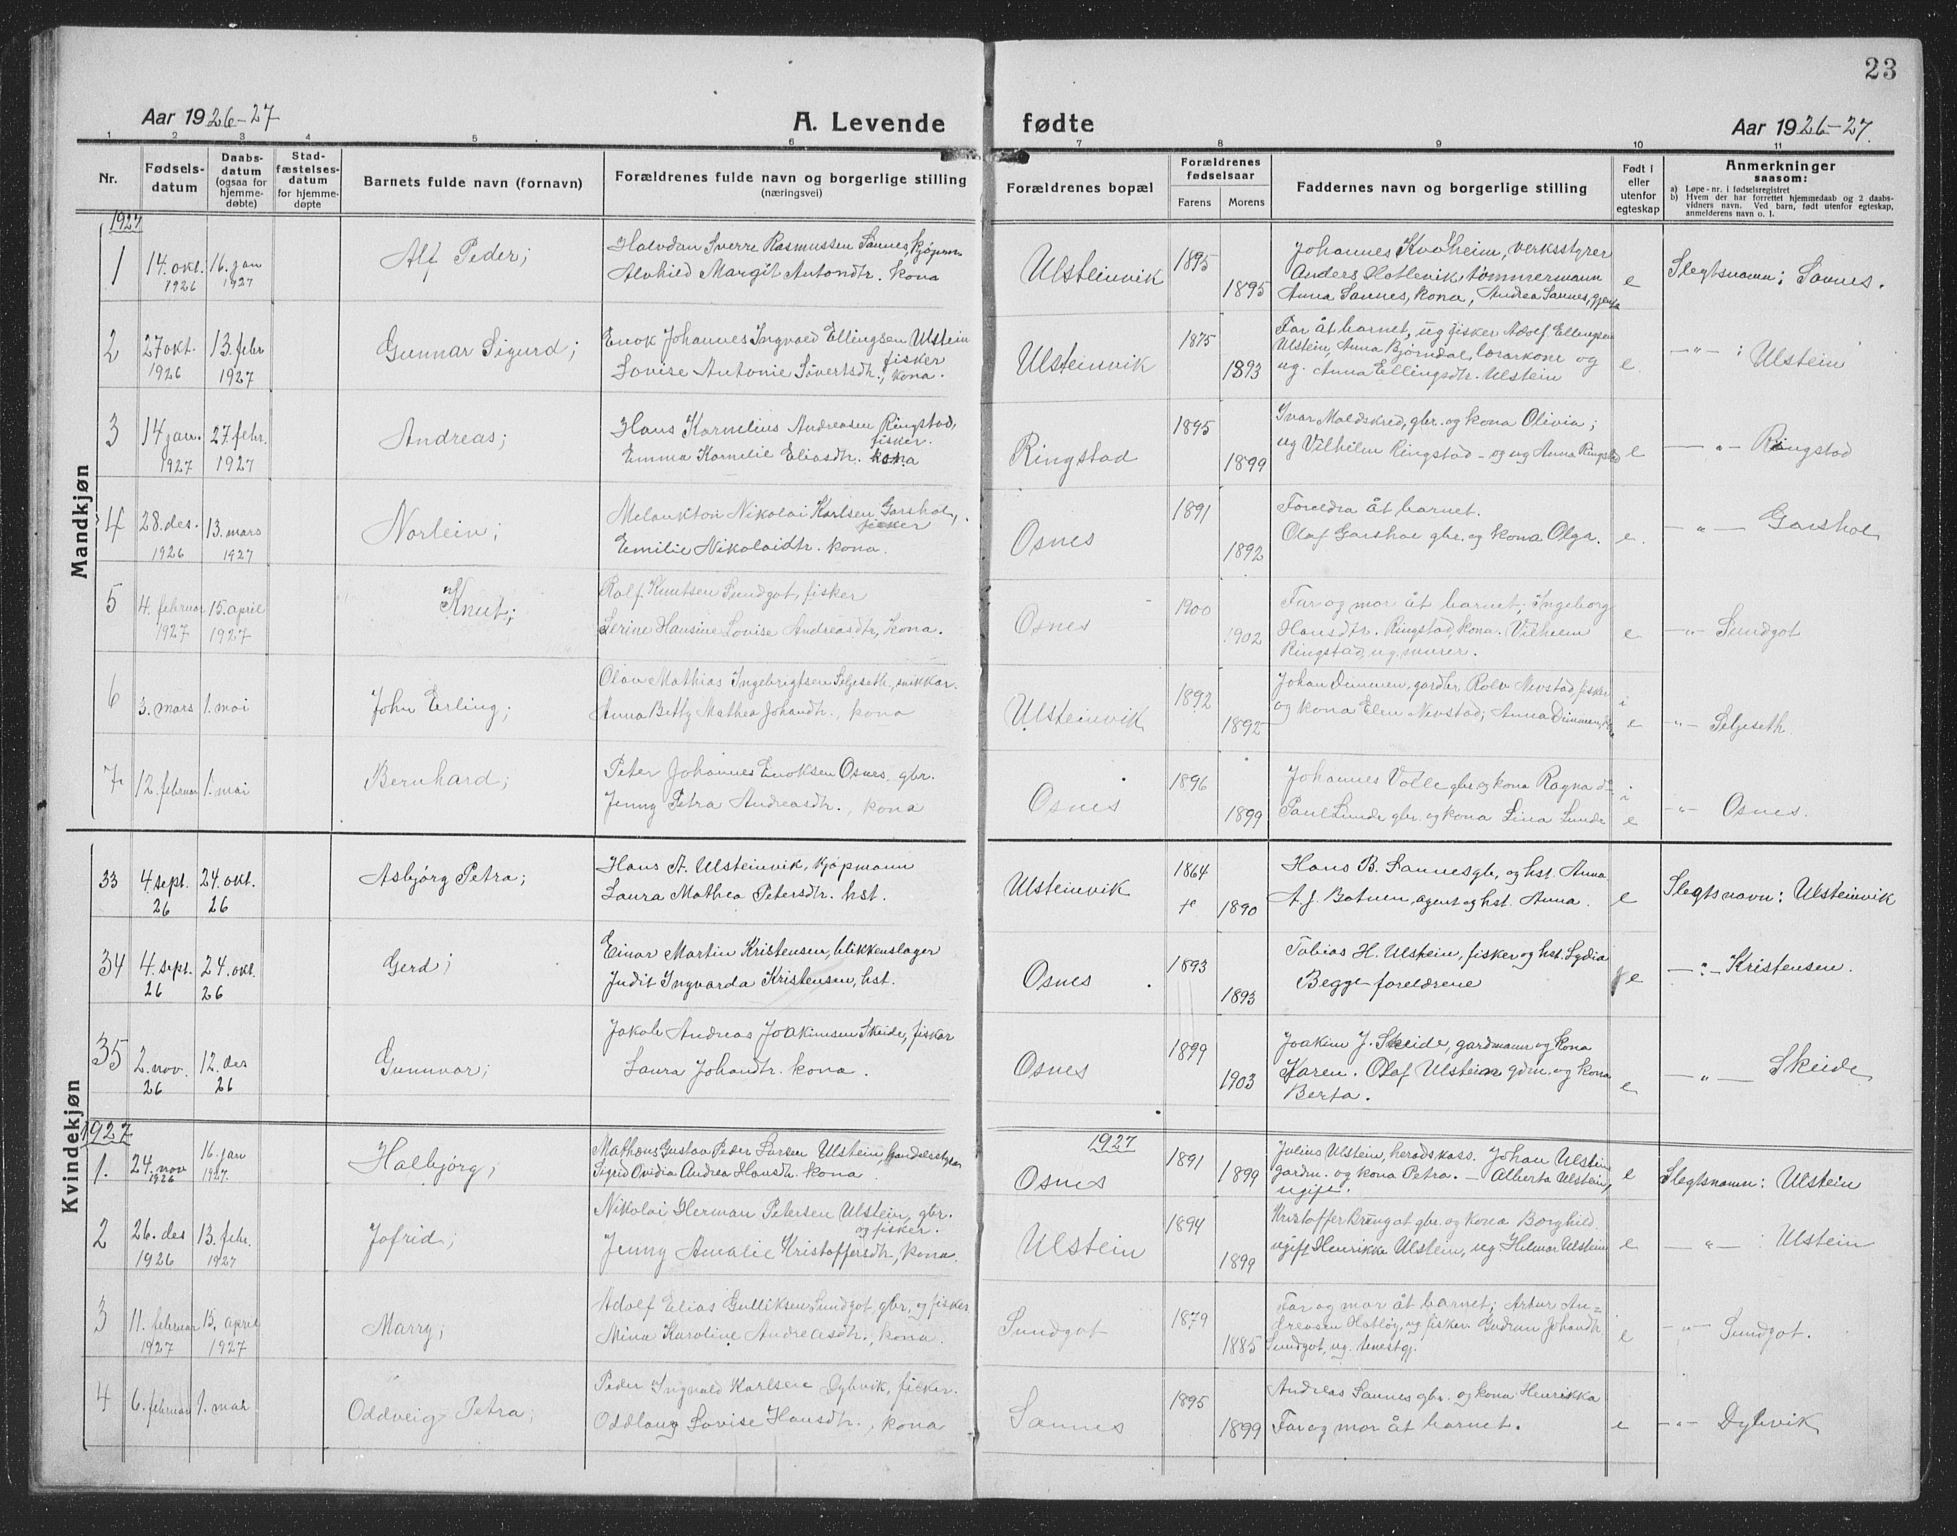 23
Aar 1926-27 A. Levende fødte Aar 1926-27
1 2 3 4 5 6 7 8 9 10 11
Nr. Fødselsdatum Daabsdatum (ogsaa for hjemmedøbte) Stadfæstelsesdatum for hjemmedøpte Barnets fulde navn (fornavn) Forældrenes fulde navn og borgerlige stilling (næringsvei) Forældrenes bopæl Forældrenes fødselsaar Farens Morens Faddernes navn og borgerlige stilling Født i eller utenfor egteskap Anmerkninger saasom:
a) Løpe-nr. i fødselsregistret
b) Hvem der har forrettet hjemmedaab og 2 daabsvidners navn. Ved barn, født utenfor egteskap, anmelderens navn o. l.
Mandkjøn
1927
1 14. okt. 1926 16. jan 1927 Alf Peder; Halvdan Sverre Rasmussen Sannes, kjøpm
Alvhild Margit Antondtr. kona Ulsteinvik 1895 1895 Johannes Kvalheim, verksstyrer
Anders Hatlevik, tømmermann
Anna Sannes, kona, Andrea Sannes, e Slegtsnamn: Sannes.
2 27 okt. 1926 13. febr 1927 Gunnar Sigurd; Enok Johannes Ingvald Ellingsen Ulstein fisker
Lovise Antonie Sivertsdtr., kona. Ulsteinvik 1875 1893 Far åt barnet, ug fisker Adolf Ellingsen
Ulstein, Anna Bjørndal, lærarkone og
ug. Anna Ellingsdtr. Ulstein e. —"— : Ulstein
3 14 jan. 1927 27. febr. 1927 Andreas; Hans Kornelius Andreasen Ringstad, fisker.
Emma Kornelie Eliasdtr. kona Ringstad 1895 1899 Ivar Maldskred, gbr. og kona Olivia;
ug Vilhelm Ringstad - og ug Anna Ringstad e —"— Ringstad
4 28. des. 1926 13. mars 1927 Norlein; Melankton Nikolai Karlsen Garshol, fisker
Emilie Nikolaidtr. kona. Osnes 1891 1892 Foreldra åt barnet.
Olaf Garshol gbr. og kona Olga. e. —"— Garshol
5 4. februar 1927 15. april 1927 Knut; Rolf Knutsen Sundgot, fisker
Serine Hansine Lovise Andreasdtr, kona. Osnes 1900 1902 Far og mor åt barnet; Ingeborg
Hansdtr. Ringstad, kona. Vilhelm
Ringstad, ug. murer. e —"— Sundgot
6 3. mars 1. mai John Erling; Olav Mathias Ingebrigtsen Seljeseth, snikkar.
Anna Betty Mathea Johandtr., kona Ulsteinvik 1892 1892 Johan Dimmen, gardbr Rolv Nevstad, fisker
og kona Elen Nevstad; Anna Dimmen, i e —"— Seljeseth.
7 12. februar 1. mai Bernhard; Peter Johannes Enoksen Osnes gbr.
Jenny Petra Andreasdtr., kona Osnes 1896 1899 Johannes Volle gbr og kona Ragna do
Paul Sunde gbr. og kona Lina Sunde i e —"— Osnes.
Kvindekjøn
33 4 sept. 26 24. okt. 26 Asbjørg Petra; Hans A. Ulsteinvik, kjøpmann
Laura Mathea Petersdtr. hst. Ulsteinvik 1864 1890 Hans B. Sannes gb, og hst. Anna
A. J. Botnen, agent og hst. Anna. e Slegtsnavn: Ulsteinvik
34 4. sept. 26 24. okt. 26 Gerd; Einar Martin Kristensen, blikkenslager
Judit Ingvarda Kristensen, hst. Osnes 1893 1893 Tobias H. Ulstein, fisker og hst. Lydia
Begge foreldrene e —"— Kristensen.
35 2. nov. 26 12. des 26 Gunnvor; Jakob Andreas Joakimsen Skeide, fiskar
Laura Johandtr. kona. Osnes 1899 1903 Joakim J. Skeide, gardmann og kona
Karen. Olaf Ulstein gdm. og kona
Berta. e —"— Skeide
1927 1927
1. 24. nov 1926 16. jan 1927. Halbjørg; Mathæus Gustav Peder Larsen Ulstein, handelsstyrer
Sigrid Ovidia Andrea Hansdtr. kona. Osnes 1891 1899 Julius Ulstein, heradskass. Johan Ulstein
gardm. og kona Petra. - Alberta Ulstein,
ugift. e Slegtsnamn: Ulstein
2 26. des 1926 13. febr. 1927 Jofrid; Nikolai Herman Petersen Ulstein, gbr. og fisker.
Jenny Amalie Kristoffersdtr, kona. Ulstein 1894 1899 Kristoffer Kringat gbr. og kona Borghild.
ugift Henrikke Ulstein, ug. Hilmar Ulstein e —"— : Ulstein
3 11. februar 1927 15. april 1927 Marry; Adolf Elias Gulliksen Sundgot, gbr. og fisker.
Mina Karoline Andreasdtr., kona. Sundgot 1879 1885 Far og mor åt barnet; Artur An-
dreasen Hatløy, ug. fisker. Gudrun Johandtr.
Sundgot, ug. tenestgj. e —"— Sundgot.
4 6. februar 1. mai Oddveig Petra; Peder Ingvald Karlsen Dybvik, fisker.
Oddlaug Lovise Hansdtr., kona Sannes 1895 1899 Andreas Sannes gbr. og kona Henrikka
Far og mor åt barnet. e —"— Dybvik